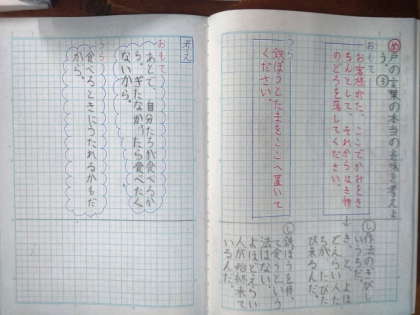 め 戸の言葉の本当の意味を考えよ
う。③
おもて
お客様がた、ここでかみをき
ちんとして、それからはき物
のどろを落してください。
うら
鉄ぽうとたまをここへ置いて
ください。
し 作法のきびし
いうちだ。
き、と、よほど
えらい人た
ちが、たびた
び来るんだ。
し 鉄ぽうを持
って食うという
法はない。
よほどえらい
人が始終来て
いるんだ。
考え
おもて
あとで、自分たちが食べるか
ら、きたなかったら食べたく
ないから。
うら
食べるときにうたれるかもだ
から。